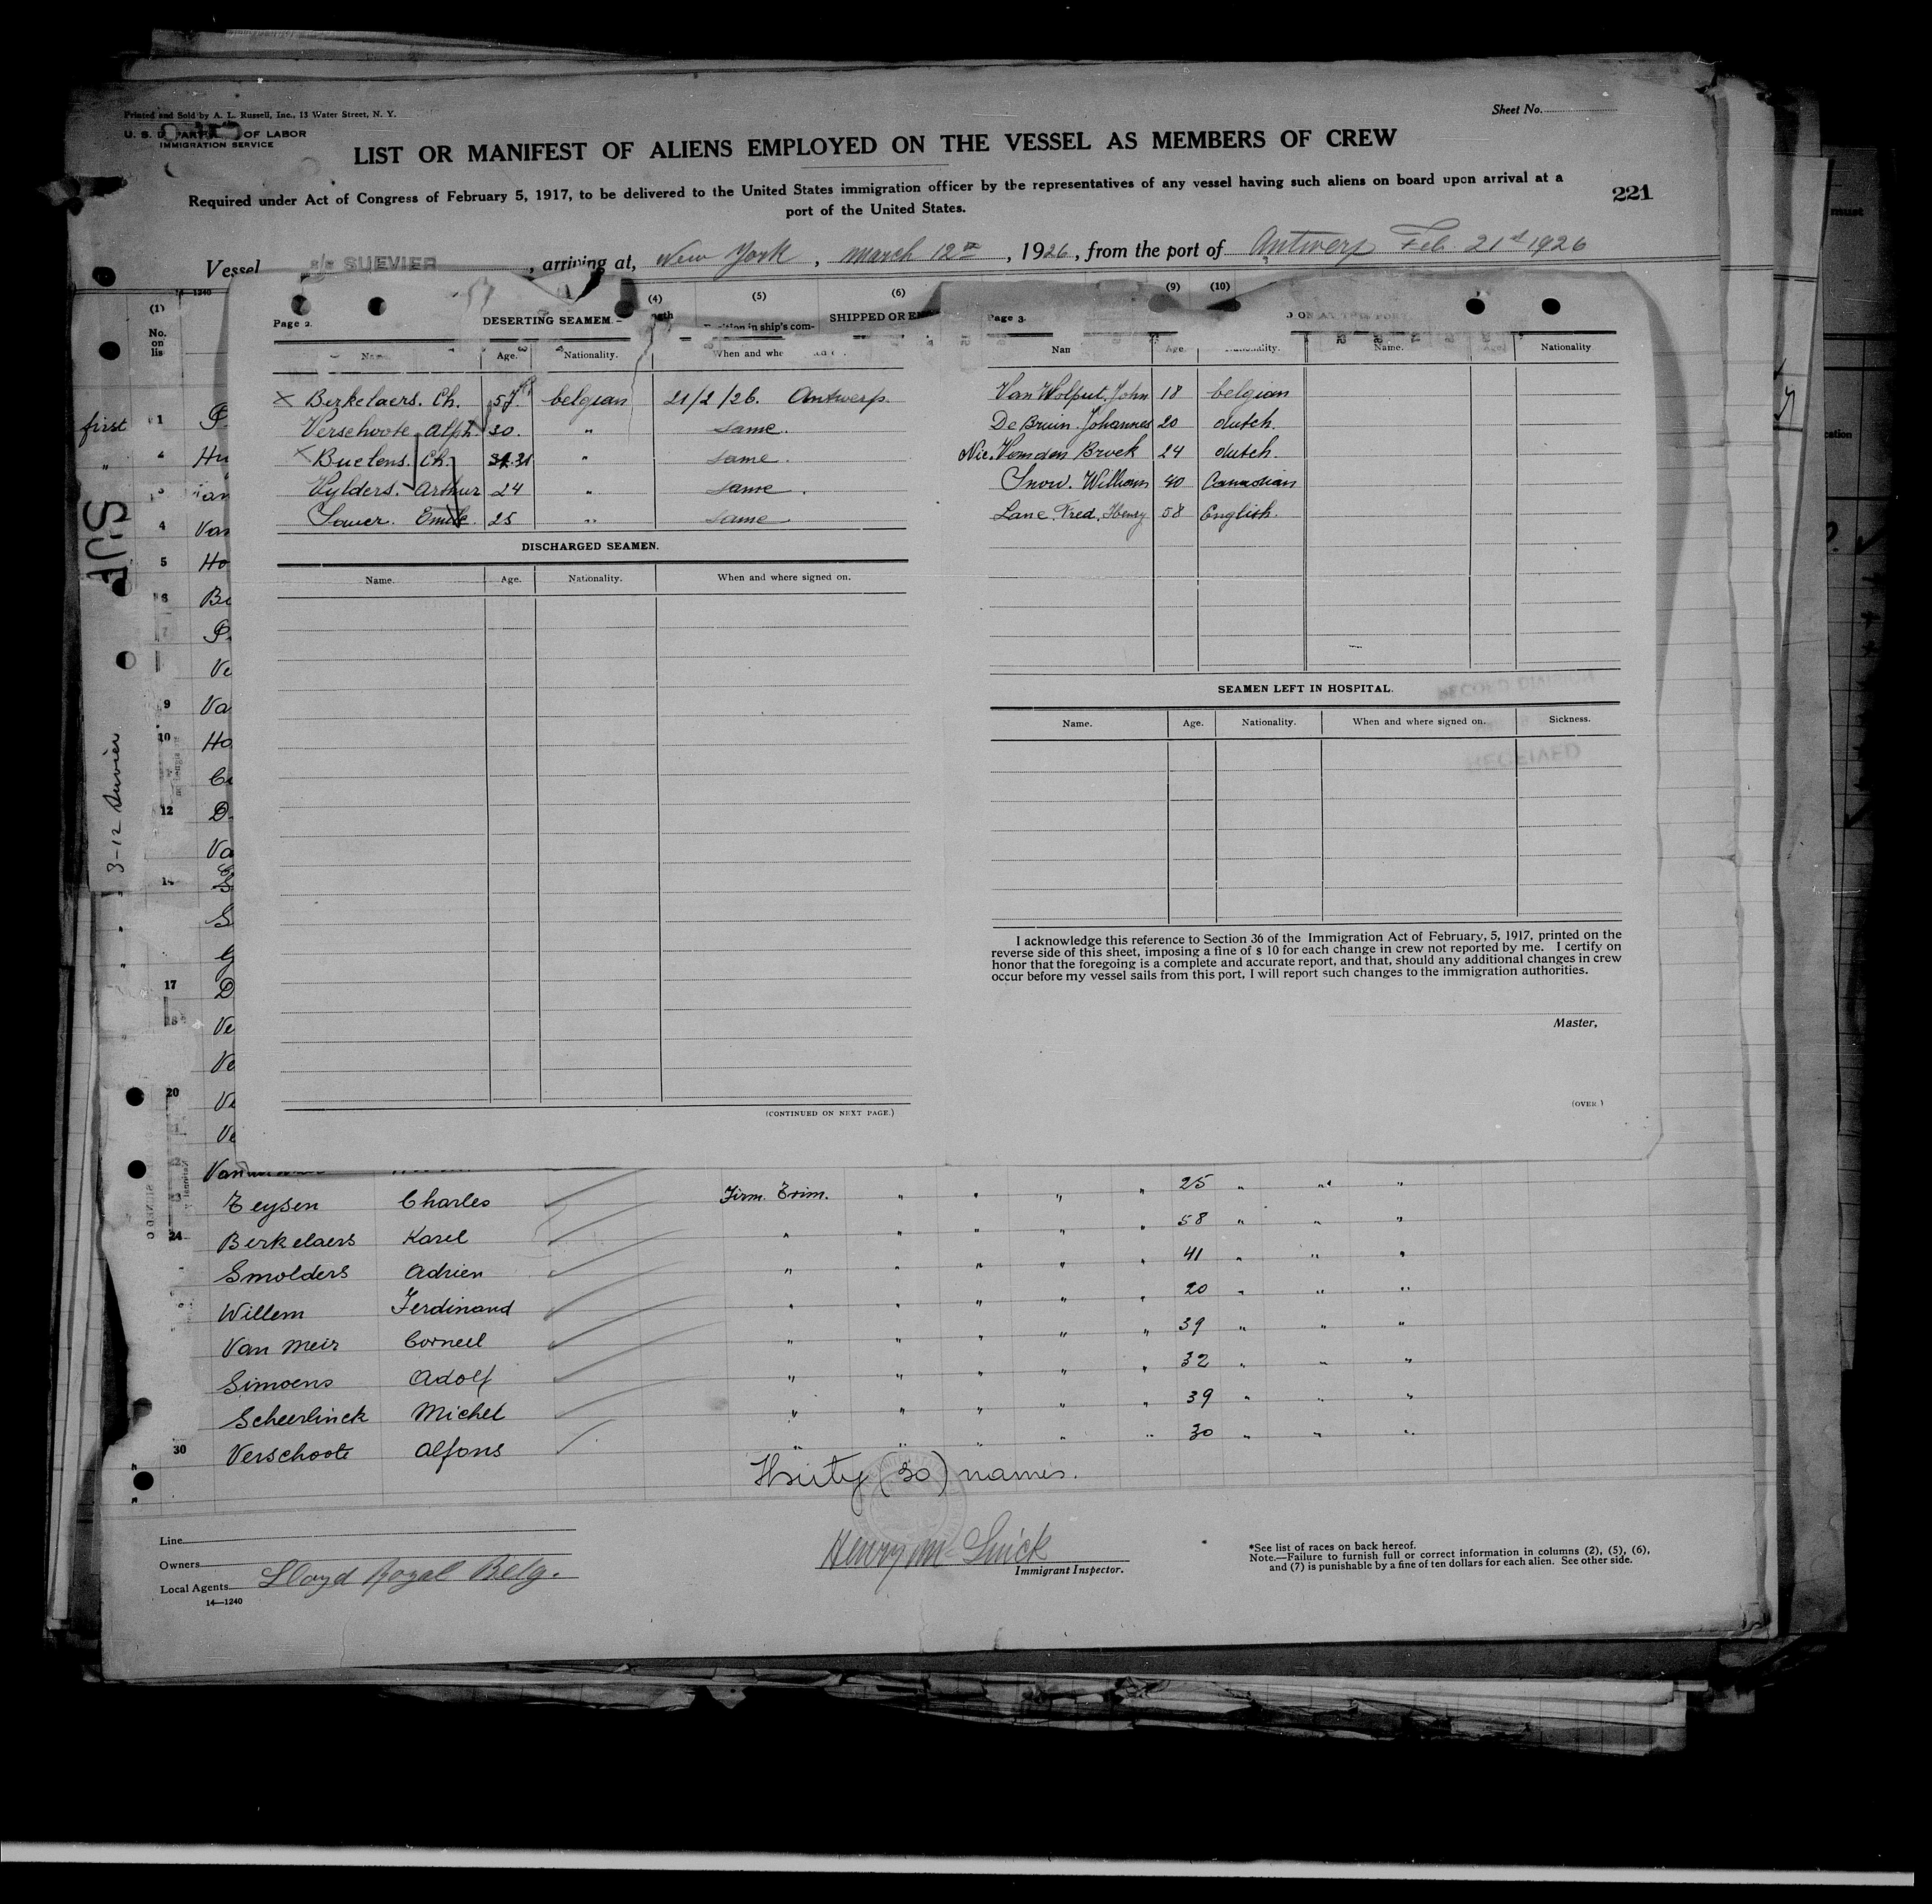 Printed and Sold by A. L. Russell, Inc., 13 Water Street, N. Y.
Sheet No.
U. S. OF LABOR
IMMIGRATION SERVICE
LIST OR MANIFEST OF ALIENS EMPLOYED ON THE VESSEL AS MEMBERS OF CREW
Required under Act of Congress of February 5, 1917, to be delivered to the United States immigration officer by the representatives of any vessel having such aliens on board upon arrival at a
port of the United States.
221
Vessel s/s SUEVIER, arriving at, New York, March 12th, 1926, from the port of Antwerp Feb. 21st 1926
14—1240
(1) (4) (5) (6) (9) (10)
No. on lis
Page 2.
DESERTING SEAMEM.
Age. Nationality.
x Berkelaers. Ch. 57 belgian 21/2/26. Antwerp.
Verschoote Alph. 30. " same.
x Buelens. Ch. 31 " same.
Vylders. Arthur 24 " same.
Sauer. Emile. 25 " same.
DISCHARGED SEAMEN.
Name. Age. Nationality. When and where signed on.
(CONTINUED ON NEXT PAGE.)
SHIPPED OR
Page 3.
Age. Nationality. Name. Age. Nationality
Van Wolput. John 18 belgian
De Bruin. Johannes 20 dutch.
Nic. Vomden Broek 24 dutch.
Snow. William 40 Canadian
Lane. Fred. Henry 58 English.
SEAMEN LEFT IN HOSPITAL.
SECOND DIVISION
RECEIVED
Name. Age. Nationality. When and where signed on. Sickness.
I acknowledge this reference to Section 36 of the Immigration Act of February, 5, 1917, printed on the
reverse side of this sheet, imposing a fine of $ 10 for each change in crew not reported by me. I certify on
honor that the foregoing is a complete and accurate report, and that, should any additional changes in crew
occur before my vessel sails from this port, I will report such changes to the immigration authorities.
Master,
(OVER.)
first 1
4
5 Ho
9 Va
10 Ho
12
14
17
20
3-12 Suevier
Teysen Charles Firm. Trim. " " " " 25 " " "
24 Berkelaers Karel " " " " " 58 " " "
Smolders Adrien " " " " " 41 " " "
Willem Ferdinand " " " " " 20 " " "
Van Meir Corneel " " " " " 39 " " "
Simoens Adolf " " " " " 32 " " "
Scheerlinck Michel " " " " " 39 " " "
30 Verschoote Alfons " " " " " 30 " " "
Thirty (30) names.
Line
Owners
Local Agents Lloyd Royal Belg.
14—1240
Henry
Immigrant Inspector.
*See list of races on back hereof.
Note.—Failure to furnish full or correct information in columns (2), (5), (6),
and (7) is punishable by a fine of ten dollars for each alien. See other side.